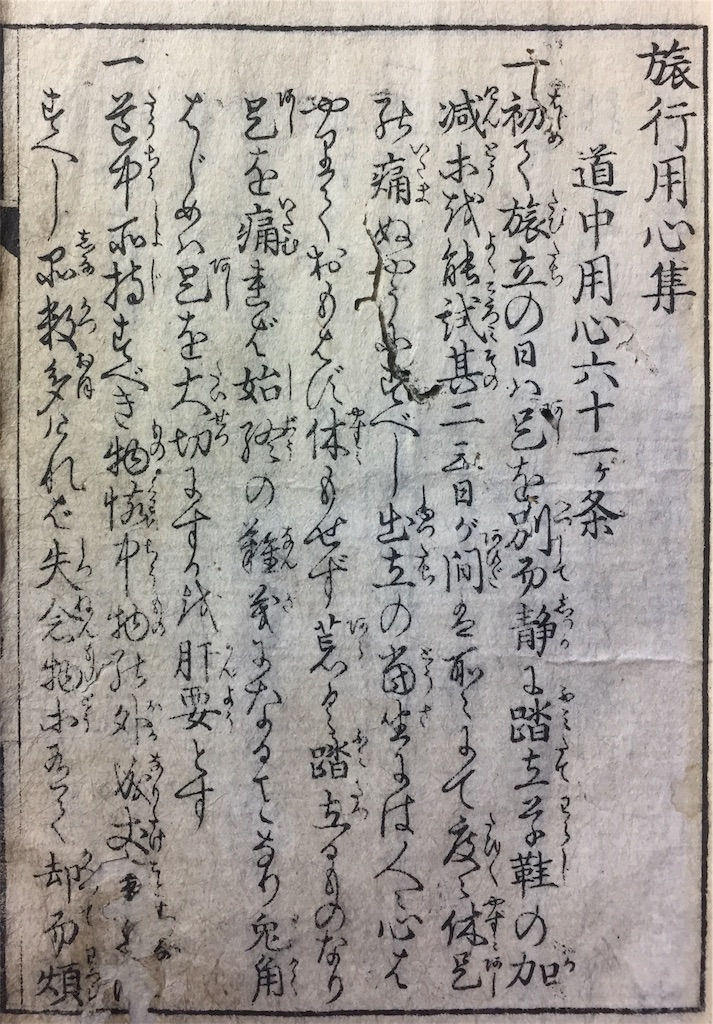 旅行用心集
道中用心六十一ヶ条
一初て旅立の日ハ足を別而静に踏立草鞋の加
減等を能試其二三日が間は所々にて度々休足
の痛ぬやうにすべし出立の当坐には人々心は
やりておもはず休もせず荒く踏立るものなり
足を痛れば始終の難義になることなり兎角
はじめハ足を大切にするを肝要とす
一道中所持すべき物懐中物の外成丈
すべし品数多けれバ失念物等有て却而煩